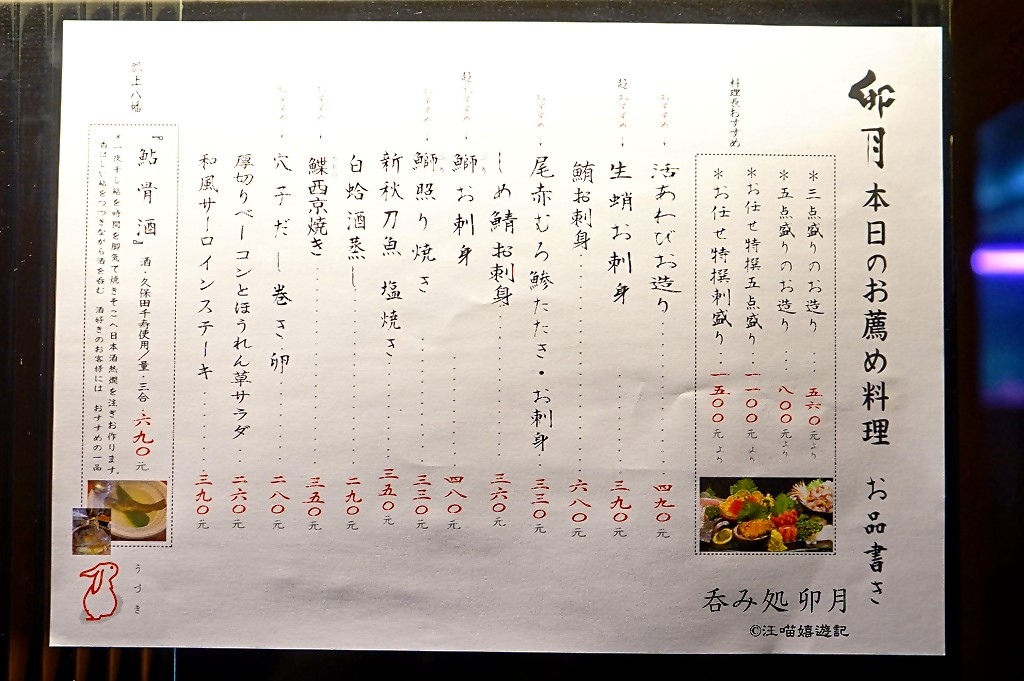 卯月 本日のお薦め料理 お品書き
料理長おすすめ
＊三点盛りのお造り・・・五六〇元より
＊五点盛りのお造り・・・八〇〇元より
＊お任せ特撰五点盛り・・・一一〇〇元より
＊お任せ特撰刺盛り・・・一五〇〇元より
おすすめ・活あわびお造り・・・四九〇元
超おすすめ・生蛸お刺身・・・三九〇元
鮪お刺身・・・六八〇元
おすすめ・尾赤むろ鯵たたき・お刺身・・・三三〇元
しめ鯖お刺身・・・三六〇元
超おすすめ・鰤お刺身・・・四八〇元
おすすめ・鰤照り焼き・・・三三〇元
新秋刀魚 塩焼き・・・三五〇元
白蛤酒蒸し・・・二九〇元
おすすめ・鰈西京焼き・・・三五〇元
おすすめ・穴子だし巻き卵・・・二八〇元
厚切りベーコンとほうれん草サラダ・・・二六〇元
和風サーロインステーキ・・・三九〇元
郡上八幡
『鮎骨酒』 酒・久保田千寿使用／量・三合 六九〇元
＊一夜干し鮎を時間を掛けて焼きそこへ日本酒熱燗を注ぎお作ります。
香ばしい鮎をつつきながら酒を呑む 酒好きのお客様には おすすめの一品
うづき
呑み処 卯月
©汪喵嬉遊記